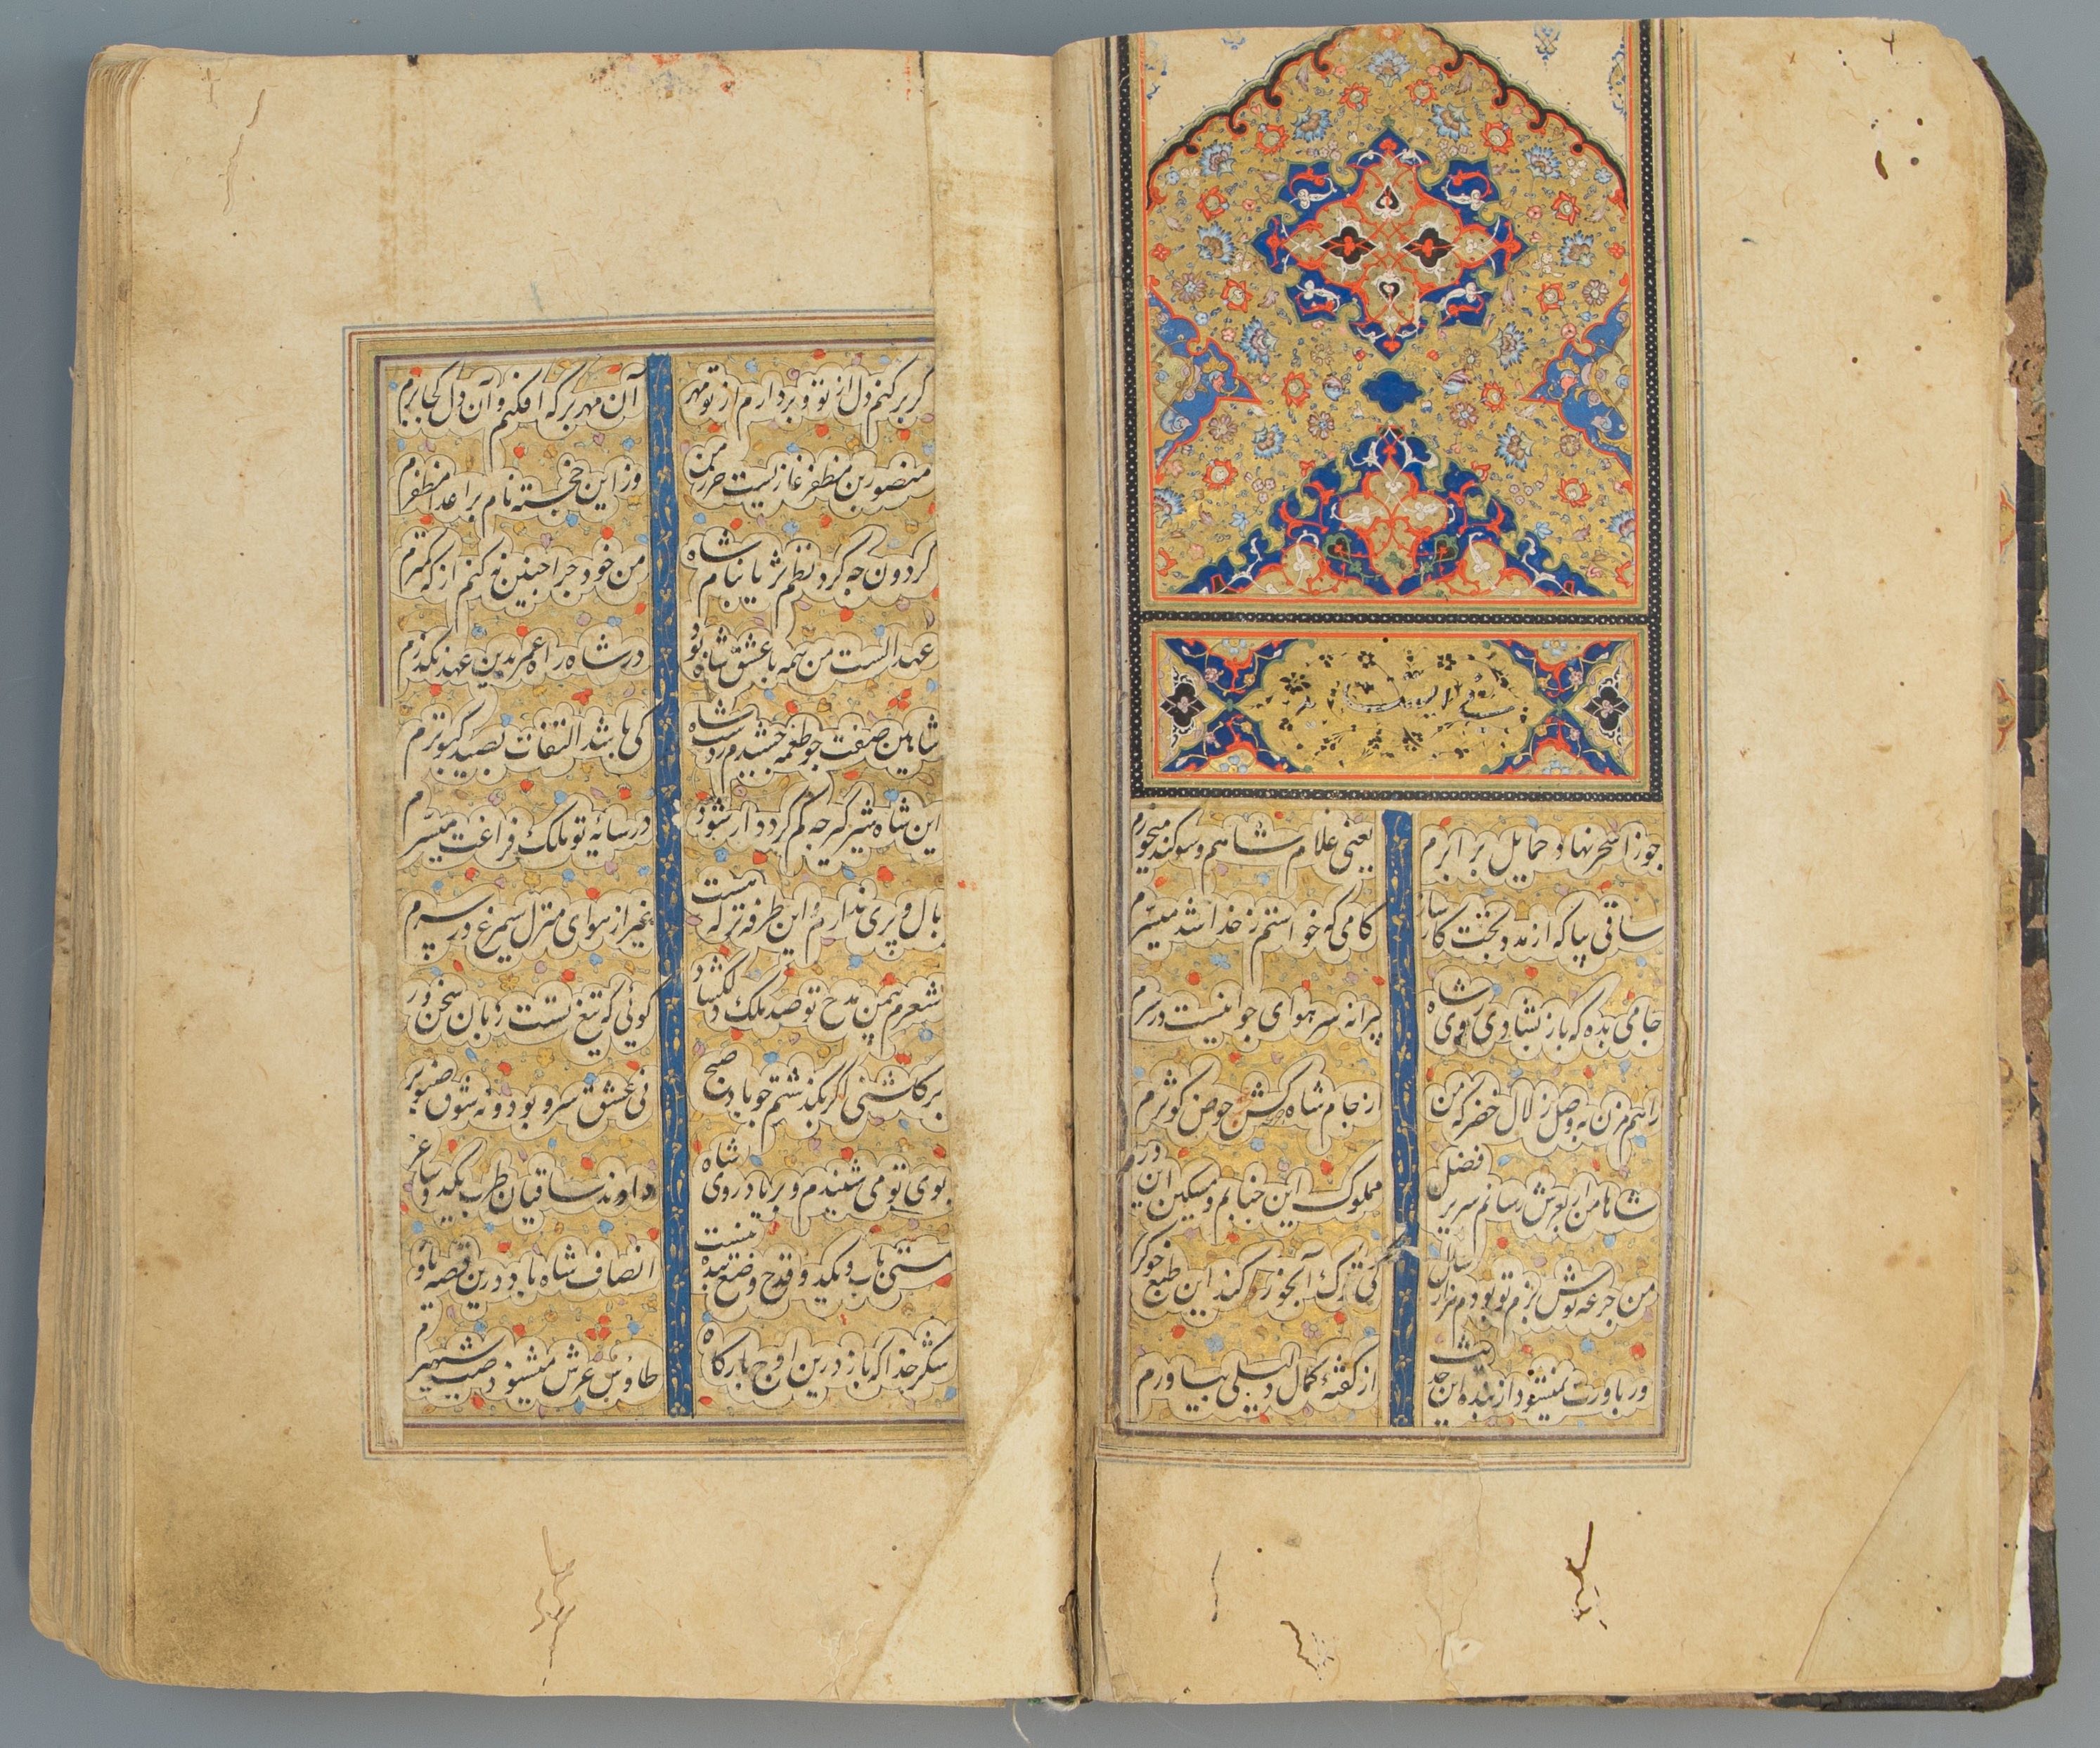 جوزا سحر نهاد حمایل برابرم یعنی غلام شاهم و سوکند میخورم
ساقی بیا که از مدد بخت کارساز کامی که خواستم ز خدا شد میسرم
جامی بده که باز بشادی روی شاه پیرانه سر هوای جوانیست در سرم
راهم مزن به وصل زلال خضر که من از جام شاه کش حوض کوثرم
شاها من ار بعرش رسانم سریر فضل مملوک این جنابم و مسکین این درم
من جرعه نوش بزم تو بودم هزار سال کی ترک آبخور کند این طبع خوکرم
ور باورت نمیشود از بنده این حدیث از کفتهٔ کمال دلیلی بیاورم
کر بر کنم دل از تو و بردارم از تو مهر آن مهر بر که افکنم و آن دل کجا برم
منصور بن مظفر غازیست حرز من وز این خجسته نام بر اعدا مظفرم
کردون چه کرد نظم ثریا بنام شاه من خود چرا چنین نه کنم از که کمترم
عهد الست من همه با عشق شاه بود در شاه راه عمر بدین عهد بکذرم
شاهین صفت چو طعمه چشیدم ز دست شاه کی باشد التفات بصید کبوترم
این شاه شیر کیر چه کم کردد ار شود در سایهٔ تو ملک فراغت میسرم
بال و پری ندارم و این طرفه تر که هست بغیر از هوای منزل سیمرغ در سرم
شعرم بیمن مدح تو صد ملک دل کشاد کوئی که تیغ تست زبان سخن ور
بر کلشنی اکر بکذشتم چو باد صبح نی عشق سرو بود و نه شوق صنوبر
بوی تو می شنیدم و بر یاد روی شاه دادند ساقیان طرب یکدو ساغر
مستی بآب یکدو قدح وضع بنده نیست انصاف شاه باد درین قصه یاور
شکر خدا که باز درین اوج بارکاه طاوس عرش میشنود صیت شهپرم